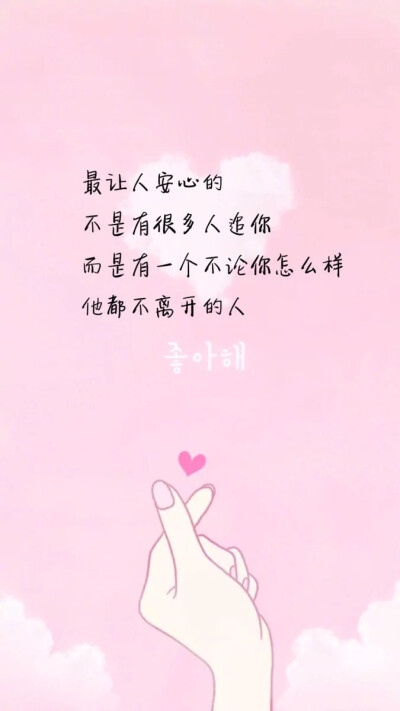 最让人安心的
不是有很多人追你
而是有一个不论你怎么样
他都不离开的人
좋아해